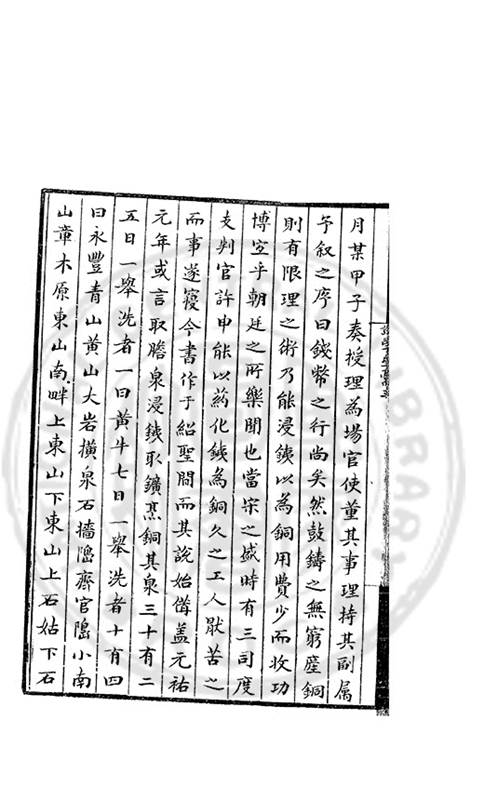 月某甲子奏授理為場官使董其事理持其副属
予叙之序曰錢幣之行尚矣然鼓鑄之無窮産銅
則有限理之術乃能浸銕以為銅用費少而收功
博宜乎朝廷之所樂聞也當宋之盛時有三司度
支判官許申能以藥化銕為銅久之工人猒苦之
而事遂寝今書作于紹聖間而其說始俻盖元祐
元年或言取膽泉浸銕取鑛烹銅其泉三十有二
五日一舉洗者一曰黄牛七日一舉洗者十有四
曰永豐青山黄山大岩横泉石墻隖齊官隖小南
山章木原東山南畔上東山下東山上石姑下石